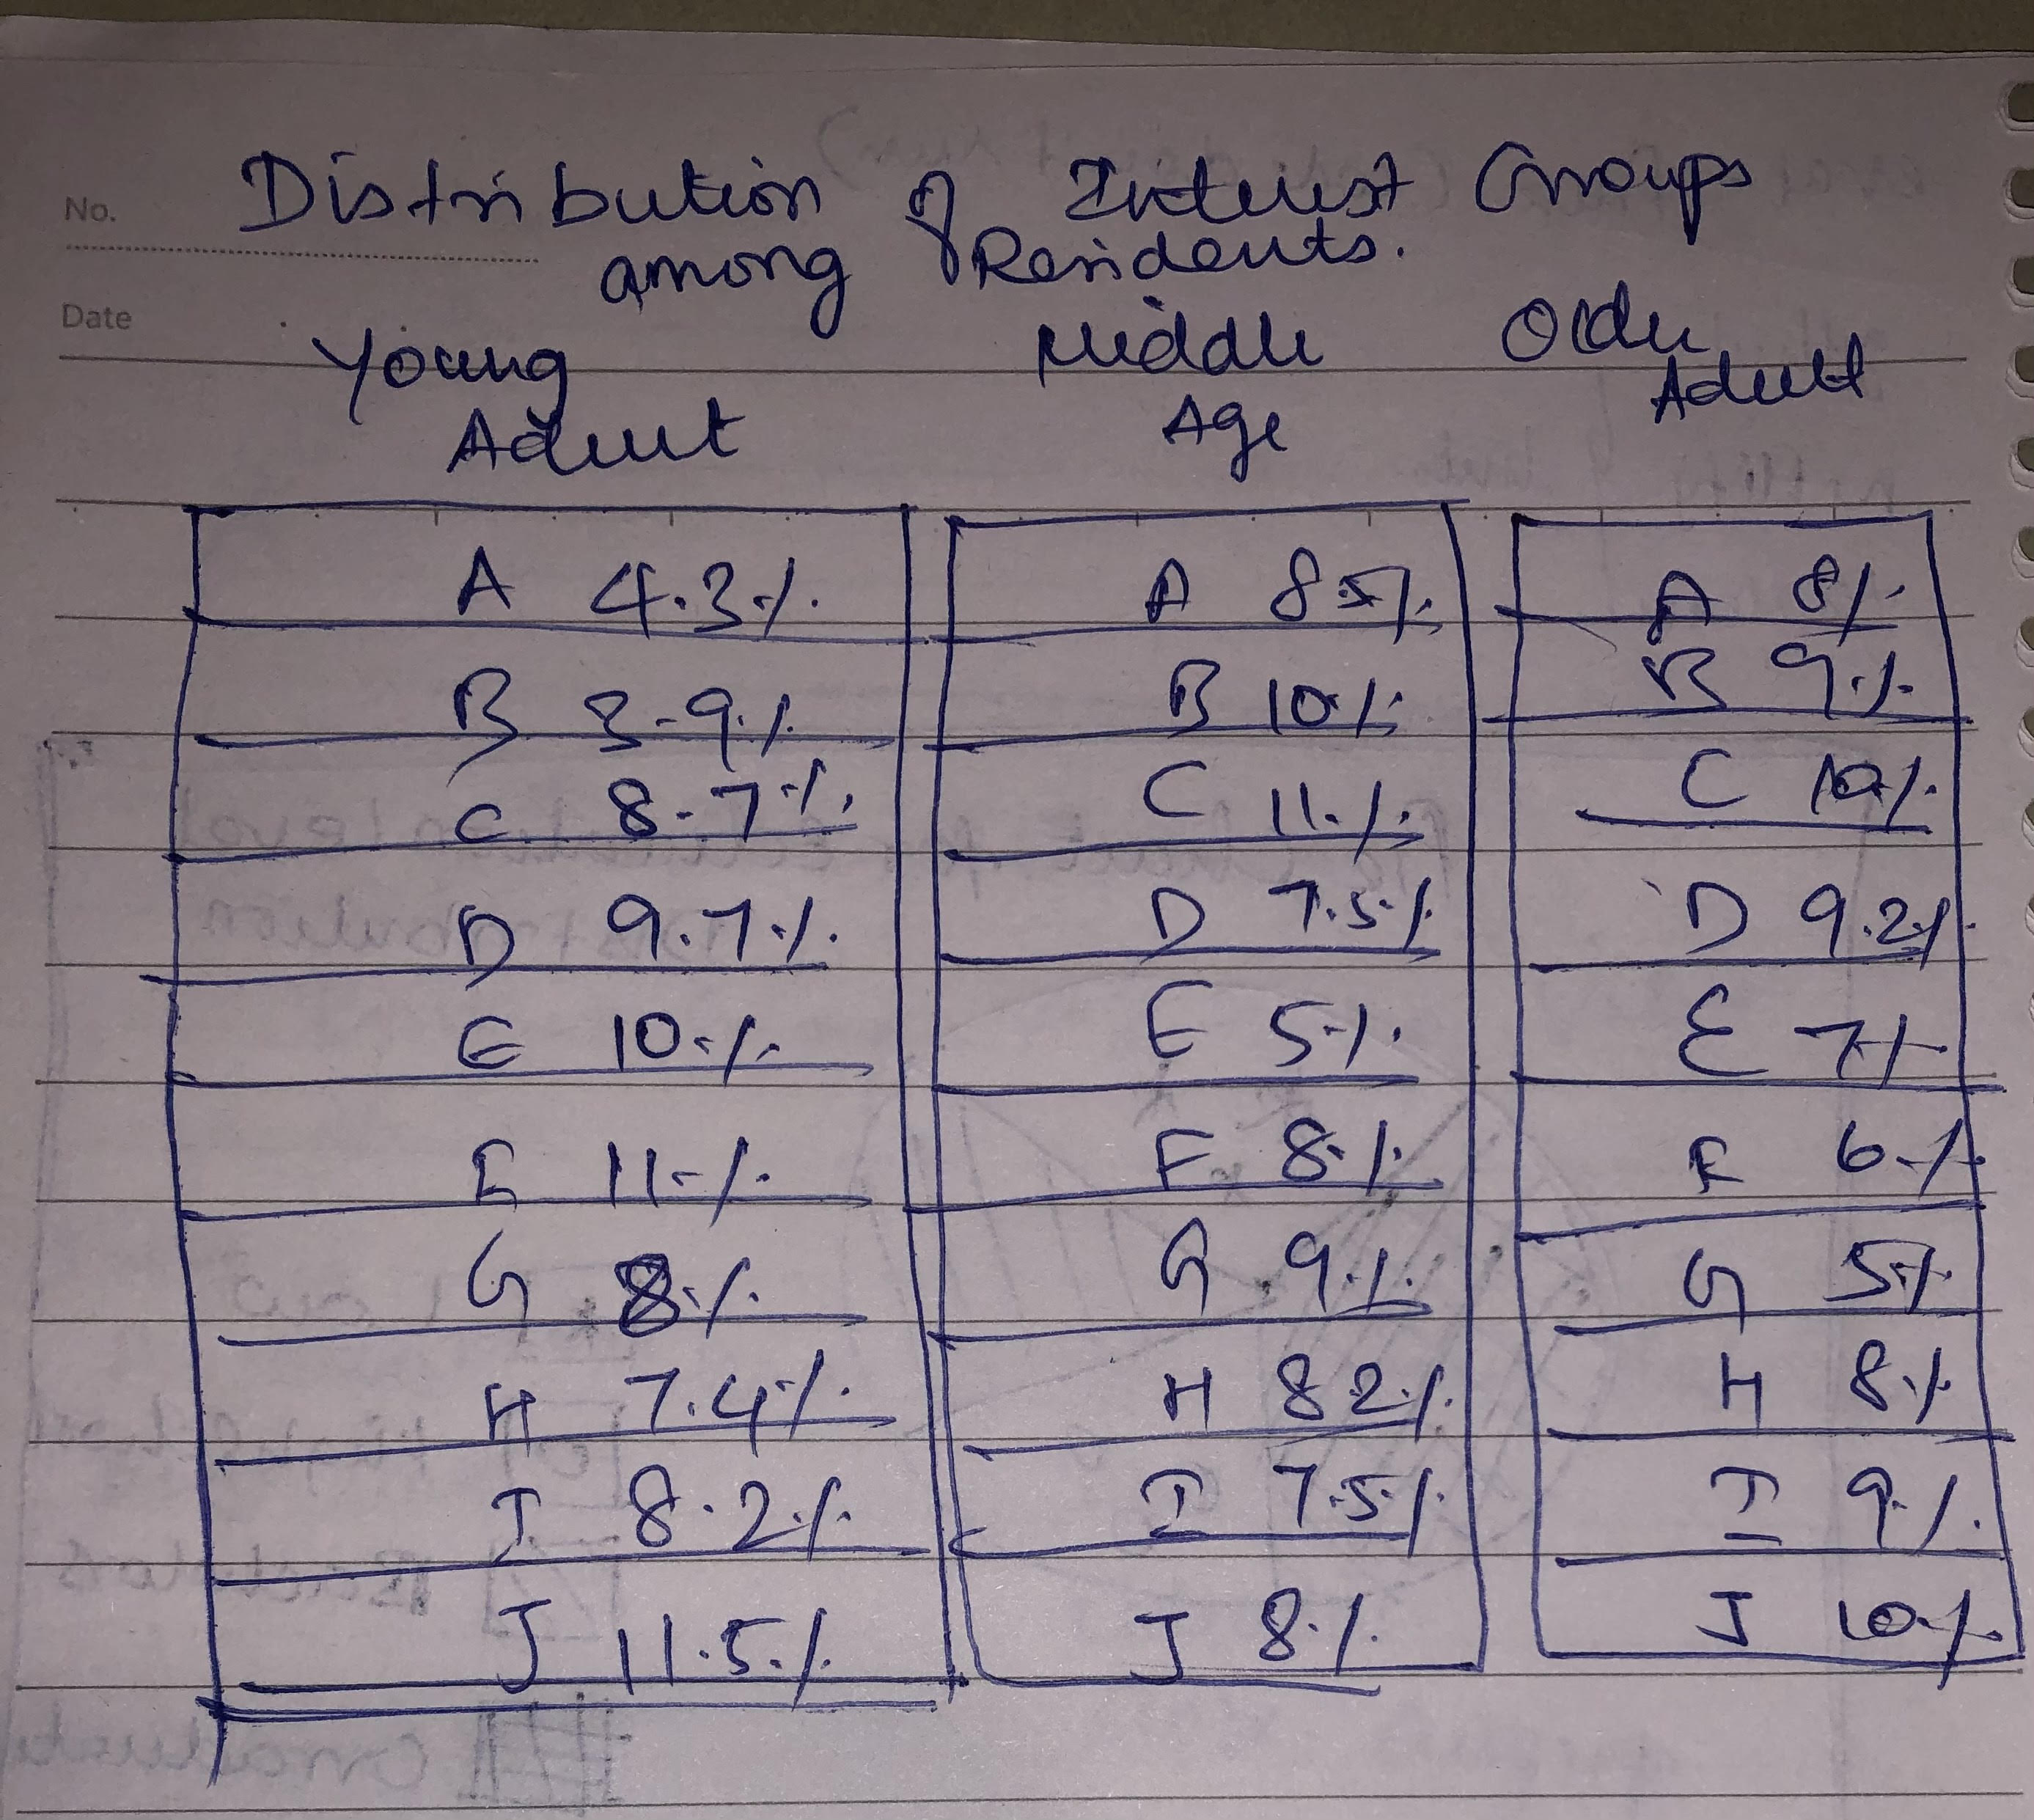 No.
Date
Distribution of Interest Groups
among Residents.
Young Adult
Middle Age
Older Adult
A 4.3% A 8.5% A 8%
B 3.9% B 10% B 9%
C 8.7% C 11% C 10%
D 9.7% D 7.5% D 9.2%
E 10% E 5% E 7%
E 11% F 8% F 6%
G 8% G 9% G 5%
H 7.4% H 8.2% H 8%
I 8.2% I 7.5% I 9%
J 11.5% J 8% J 10%